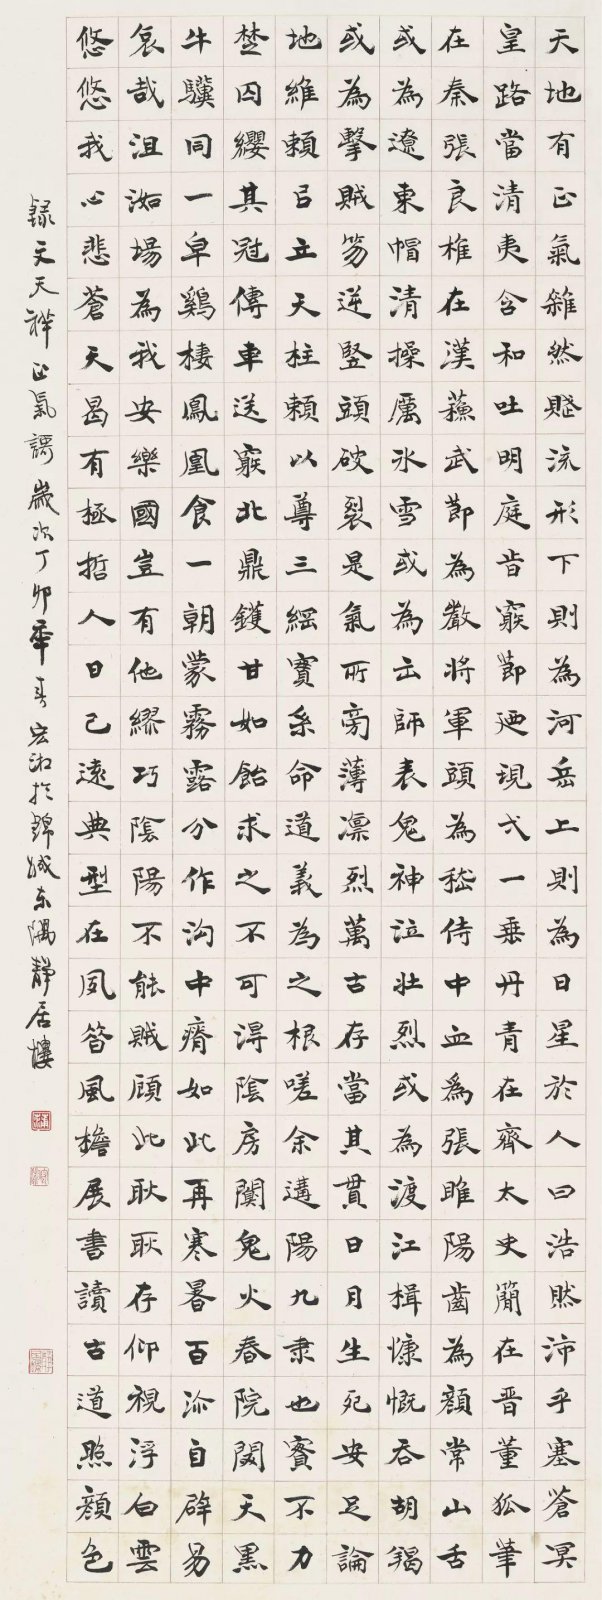 天地有正氣雜然賦流形下則為河岳上則為日星於人曰浩然沛乎塞蒼冥
皇路當清夷含和吐明庭旹窮節迺現弌一垂丹青在齊太史簡在晉董狐筆
在秦張良椎在漢蘇武節為嚴將軍頭為嵇侍中血為張睢陽齒為顏常山舌
或為遼東帽清操厲冰雪或為出師表鬼神泣壯烈或為渡江楫慷慨吞胡羯
或為擊賊笏逆豎頭破裂是氣所旁薄凛烈萬古存當其貫日月生死安足論
地維賴吕立天柱賴以尊三綱實系命道義為之根嗟余遘陽九隸也實不力
楚囚纓其冠傳車送窮北鼎鑊甘如飴求之不可得陰房闃鬼火春院閟天黑
牛驥同一皁鷄棲鳳凰食一朝蒙霧露分作沟中瘠如此再寒暑百沴自辟易
哀哉沮洳場為我安樂國豈有他繆巧陰陽不能賊顧此耿耿存仰視浮白雲
悠悠我心悲蒼天曷有極哲人日已遠典型在夙昔風檐展書讀古道照顏色
錄文天祥正氣謌歲次丁卯季春宏於錦城东隅靜居樓